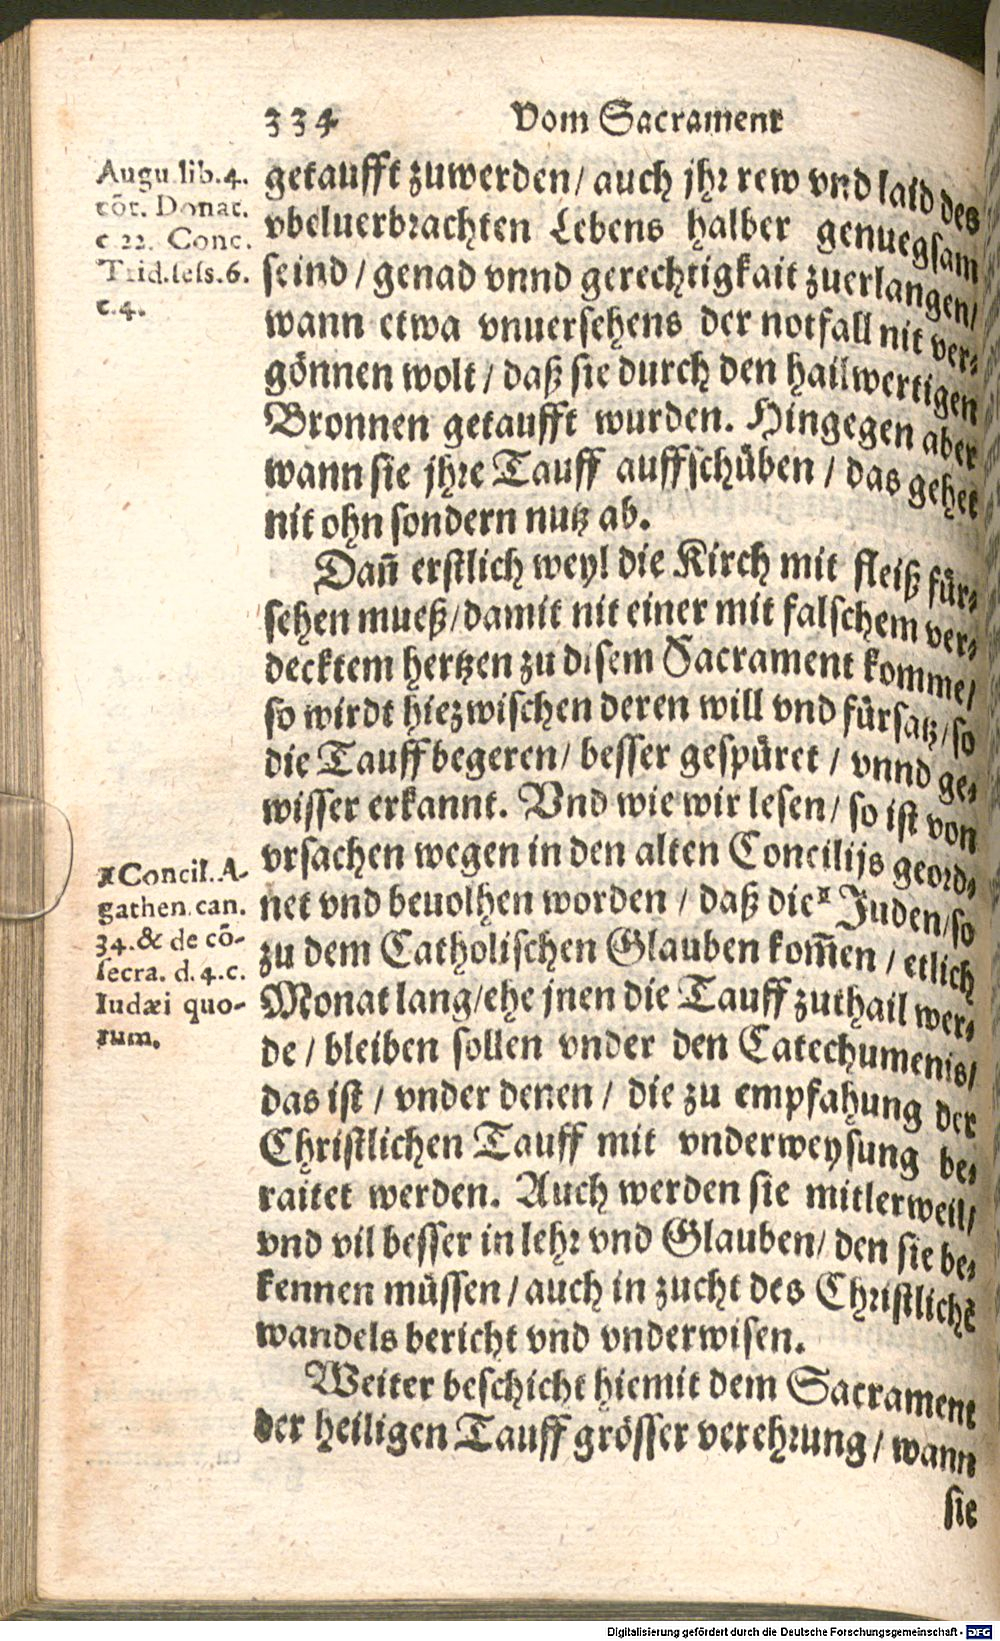 334 Vom Sacrament
Augu. lib. 4.
cōt. Donat.
c 22. Conc.
Trid. sess. 6.
c. 4.
getaufft zuwerden/ auch jhr rew vnd laid des
vbeluerbrachten Lebens halber genuegsam
seind/ genad vnnd gerechtigkait zuerlangen/
wann etwa vnuersehens der notfall nit ver-
gönnen wolt/ daß sie durch den hailwertigen
Bronnen getaufft wurden. Hingegen aber
wann sie jhre Tauff auffschüben/ das gehet
nit ohn sondern nutz ab.
Dañ erstlich weyl die Kirch mit fleiß für-
sehen mueß/ damit nit einer mit falschem ver-
decktem hertzen zu disem Sacrament komme/
so wirdt hiezwischen deren will vnd fürsatz/ so
die Tauff begeren/ besser gespüret/ vnnd ge-
wisser erkannt. Vnd wie wir lesen/ so ist von
vrsachen wegen in den alten Concilijs geord-
net vnd beuolhen worden/ daß die x Juden/ so
zu dem Catholischen Glauben kom̃en/ etlich
Monat lang/ ehe jnen die Tauff zuthail wer-
de/ bleiben sollen vnder den Catechumenis/
das ist/ vnder denen/ die zu empfahung der
Christlichen Tauff mit vnderweysung be-
raitet werden. Auch werden sie mitlerweil/
vnd vil besser in lehr vnd Glauben/ den sie be-
kennen müssen/ auch in zucht des Christlichē
wandels bericht vnd vnderwisen.
x Concil. A-
gathen. can.
34. & de cō-
secra. d. 4. c.
Iudæi quo-
rum.
Weiter beschicht hiemit dem Sacrament
der heiligen Tauff grösser verehrung/ wann
sie
Digitalisierung gefördert durch die Deutsche Forschungsgemeinschaft - DFG